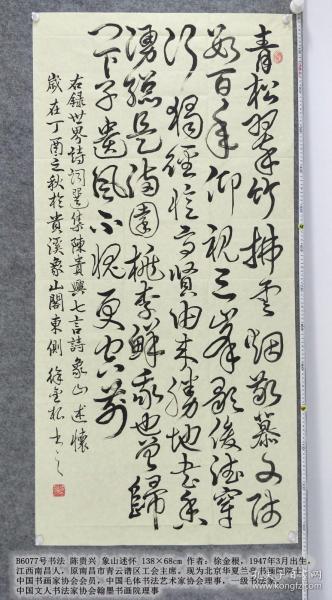 青松翠竹拂云烟敬慕文陆
数百年仰视三峯
行独径忆高贤由来胜地书香
涌总是满园桃李鲜我也曾归
门下子遗风不愧更空前
右録世界詩詞選集陳貴興七言詩象山述懷
歳在丁酉之秋於貴溪象山閣東側徐金根书之
B6077号书法 陈贵兴 象山述怀 138×68cm 作者：徐金根，1947年3月出生，
江西南昌人，原南昌市青云谱区工会主席。现为北京华夏兰亭书画院院士，
中国书画家协会会员，中国毛体书法艺术家协会理事，一级书法家，
中国文人书法家协会翰墨书画院理事